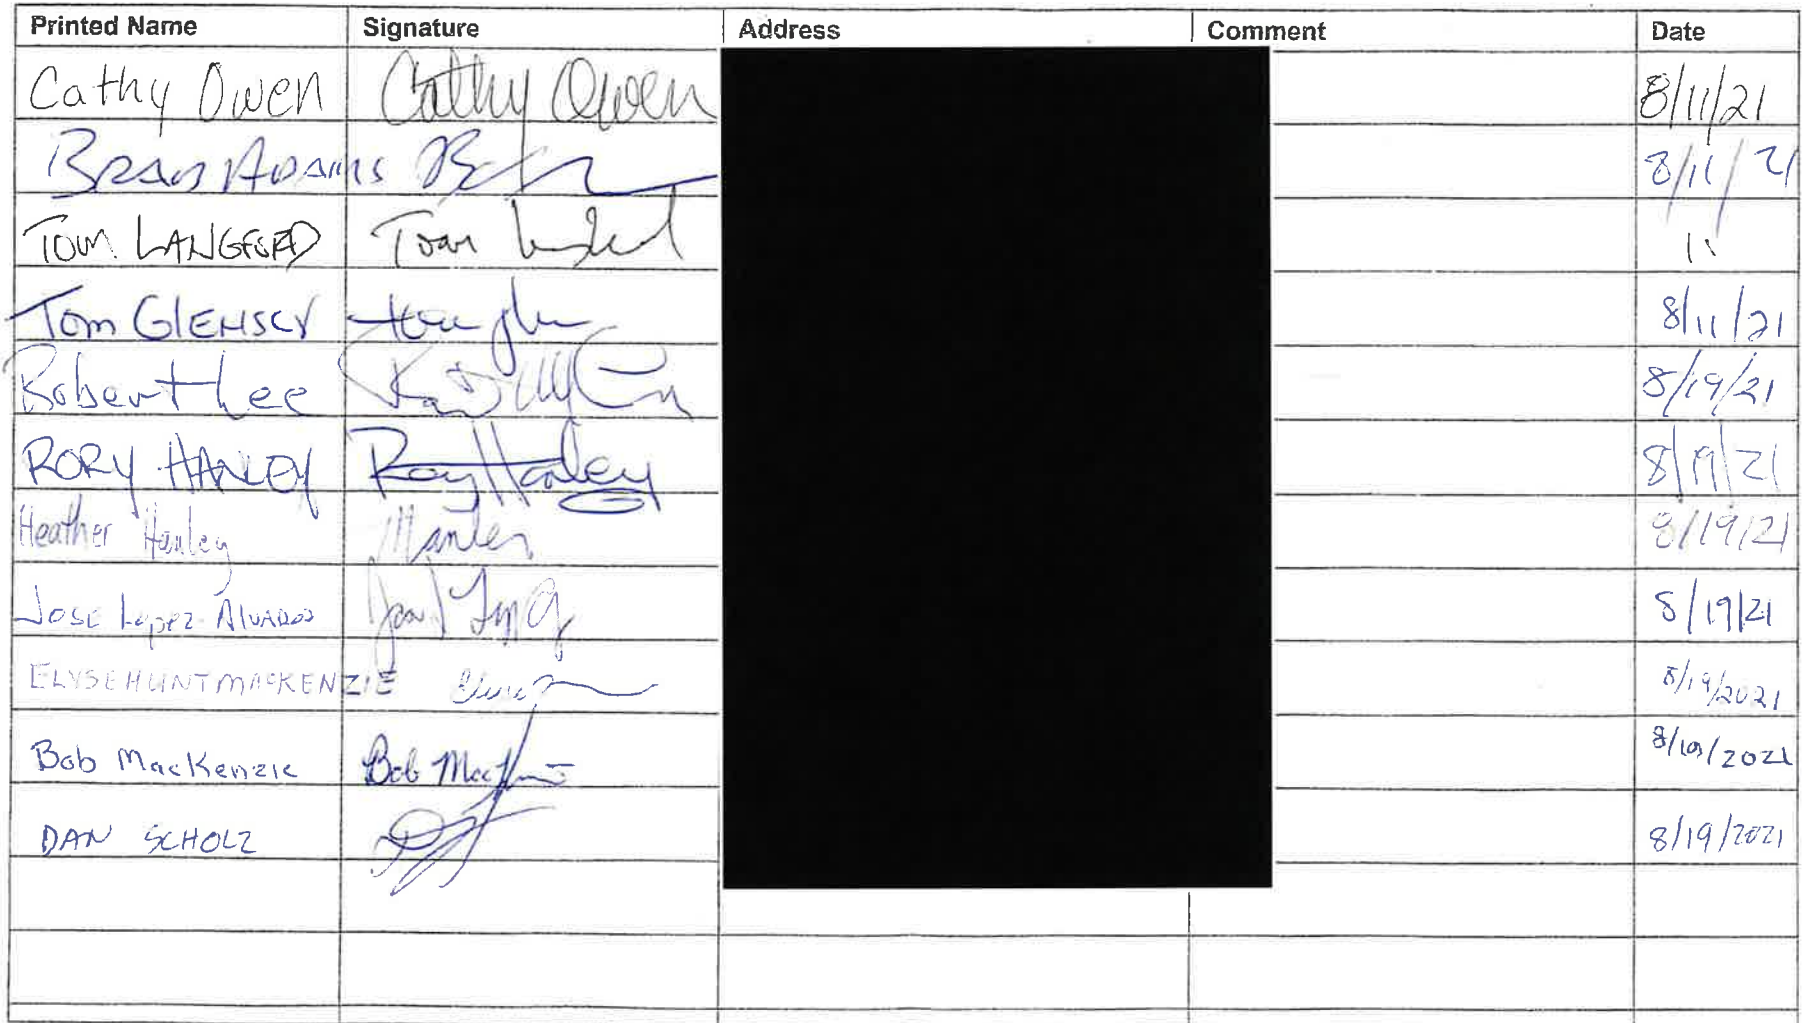 Printed Name Signature Address Comment Date
Cathy Owen Cathy Owen 8/11/21
BRAD ADAMS 8/11/21
TOM LANGFORD Tom 11
Tom GLEMSCY 8/11/21
Robert Lee 8/19/21
RORY HANLEY Rory Hanley 8/19/21
Heather Hanley Hanley 8/19/21
Jose Lopez Alvarado 8/19/21
ELYSE HUNT MACKENZIE 8/19/2021
Bob MacKenzie Bob 8/19/2021
DAN SCHOLZ 8/19/2021